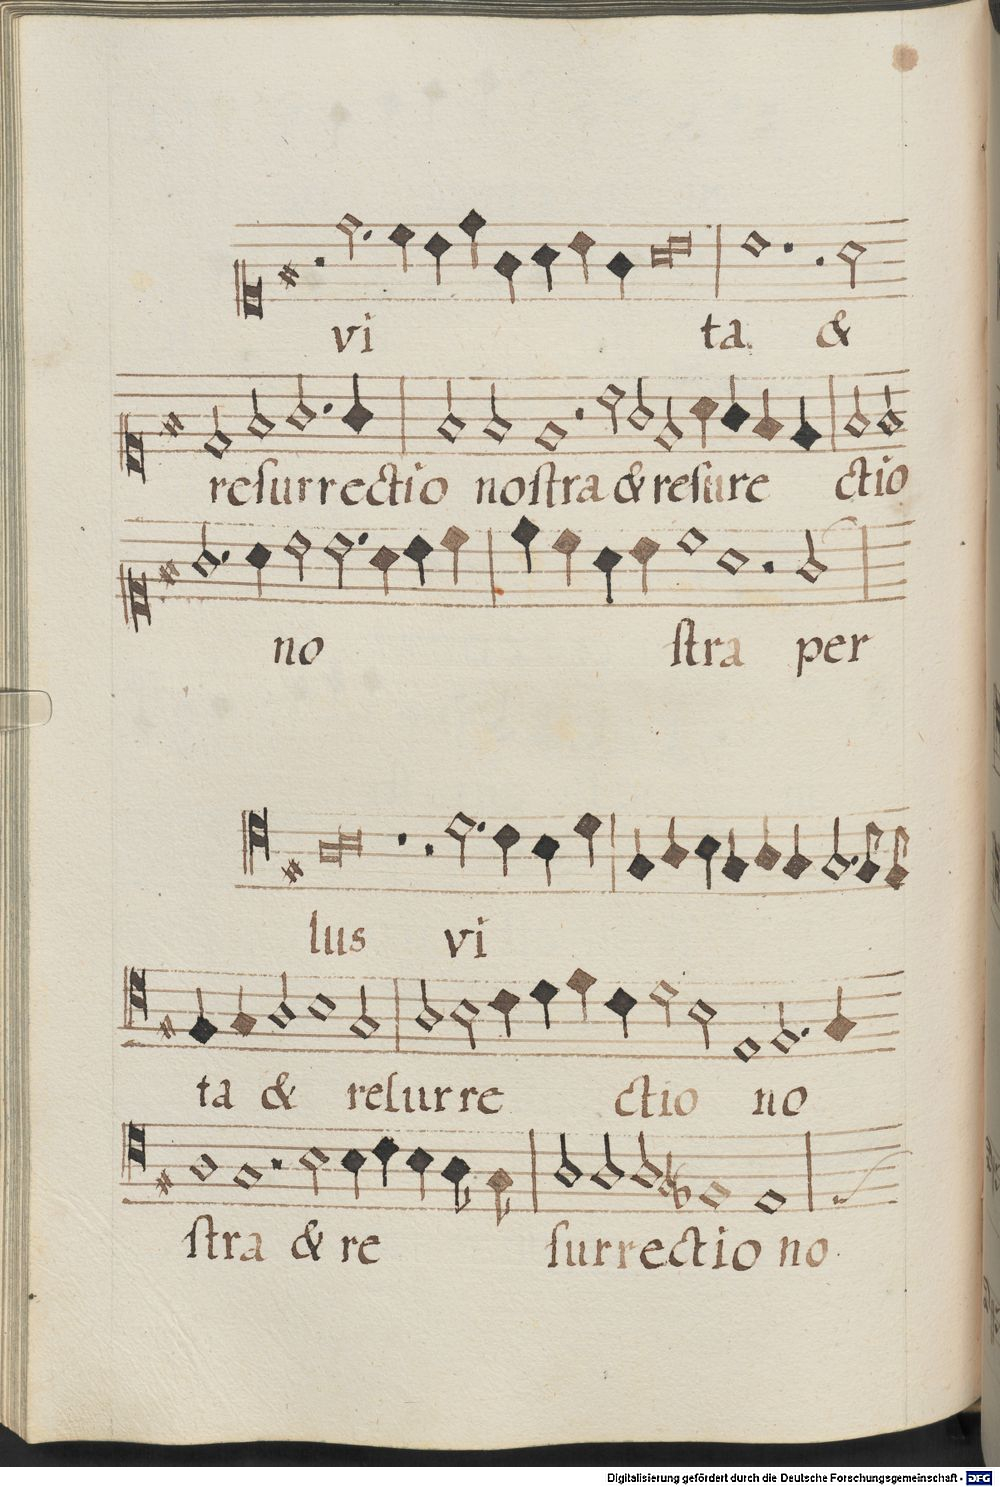 vi ta &
resurrectio nostra & resure ctio
no stra per
lus vi
ta & resurre ctio no
stra & re surrectio no
Digitalisierung gefördert durch die Deutsche Forschungsgemeinschaft - DFG